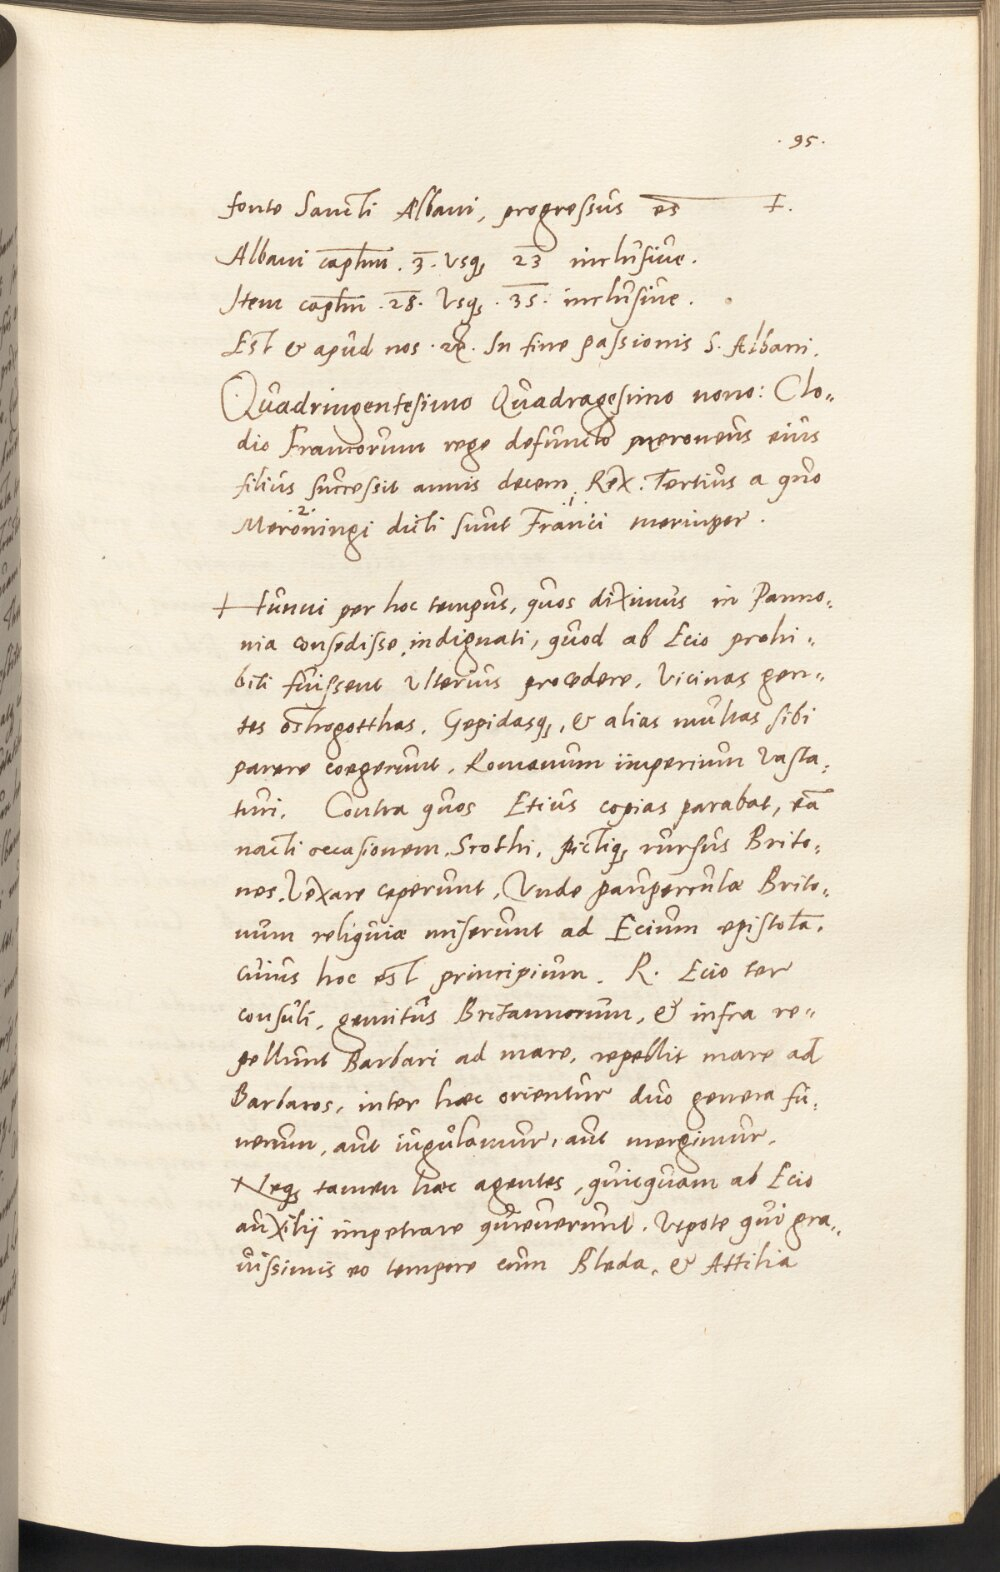 . 95 .
fonte Sancti Albani, progressus es̄ ‡.
Albani cap̄tm̄. 3̄. Usq₃ 2̄3̄ inclusiue.
Item cap̄tm̄. 2̄8̄. Usq₃. 3̄5̄. inclusiue.
Est & apud nos. In fine passionis S. Albani.
Quadringentesimo Quadragesimo nono: Clo-
dio Francorum rege defuncto meroueus eius
filius successit annis decem, Rex. Tertius a quo
Merouingi dicti sunt Franci merinper.
Hunni per hoc tempus, quos diximus in Panno-
nia consedisse, indignati, quod ab Ecio prohi-
biti fuissent Ulterius procedere, Vicinas gen-
tes ostrogotthas, Gepidasq₃, & alias multas sibi
parere coegerunt, Romanum imperium Vasta-
turi. Contra quos Etius copias parabat, eā
nacti occasionem. Scothi, pictiq₃ rursus Brito-
nes. Vexare ceperunt, Unde pauperculæ Brito-
num reliquiæ miserunt ad Ecium epistolā.
cuius hoc est principium. R. Ecio ter
consuli, gemitus Britannorum, & infra re-
pellunt Barbari ad mare, repellit mare ad
Barbaros, inter hæc orientur duo genera fu-
nerum, aut iugulamur, aut mergimur.
Neq₃ tamen hæc agentes, quicquam ab Ecio
auxilij impetrare quieuerunt. Utpote qui gra-
uissimis eo tempore cum Bleda, & Attilia